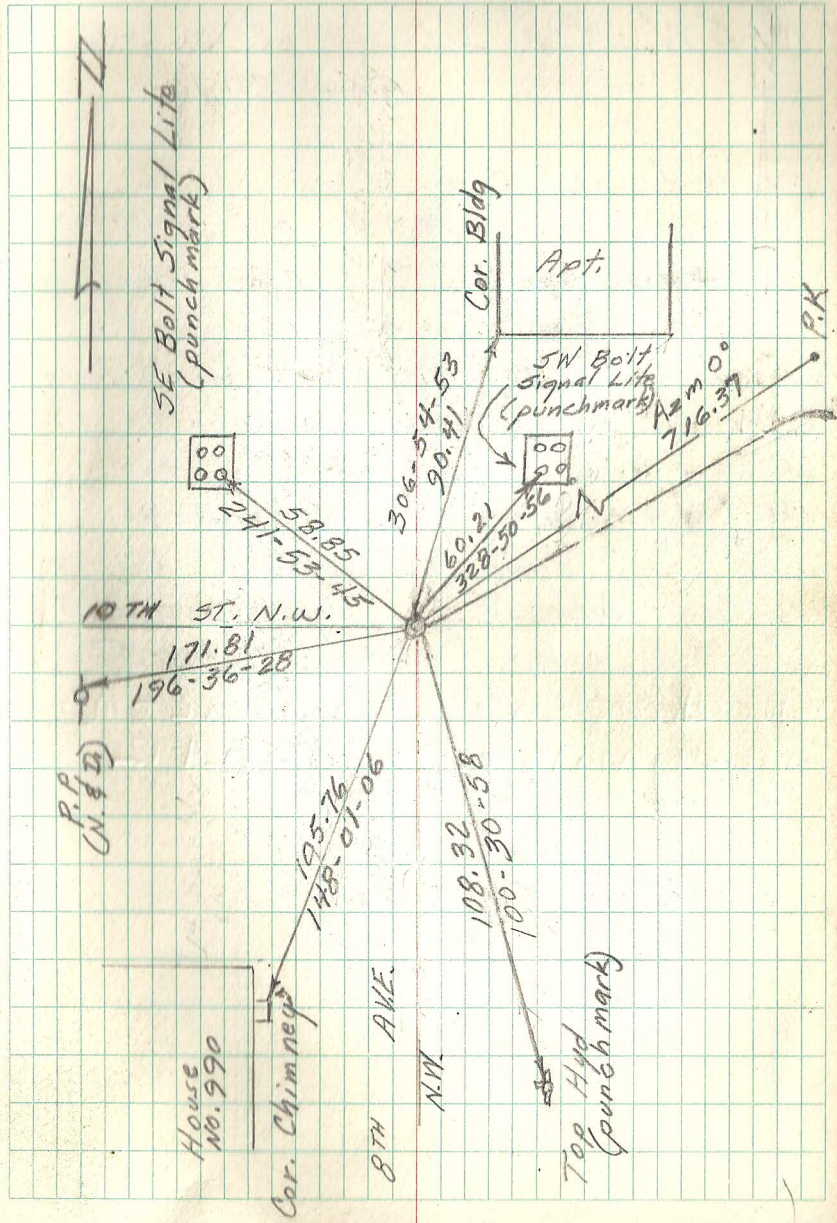 SE Bolt Signal Lite
(punchmark)
Cor. Bldg
Apt.
SW Bolt
Signal Lite
(punchmark)
Azm 0°
716.37
P.K
306-54-53
90.41
60.21
328-50-56
58.85
241-53-45
10TH ST. N.W.
171.81
196-36-28
P.P.
105.76
148-01-06
108.32
100-30-58
House
No. 990
Cor. Chimney
8TH AVE.
N.W.
Top Hyd
(punchmark)